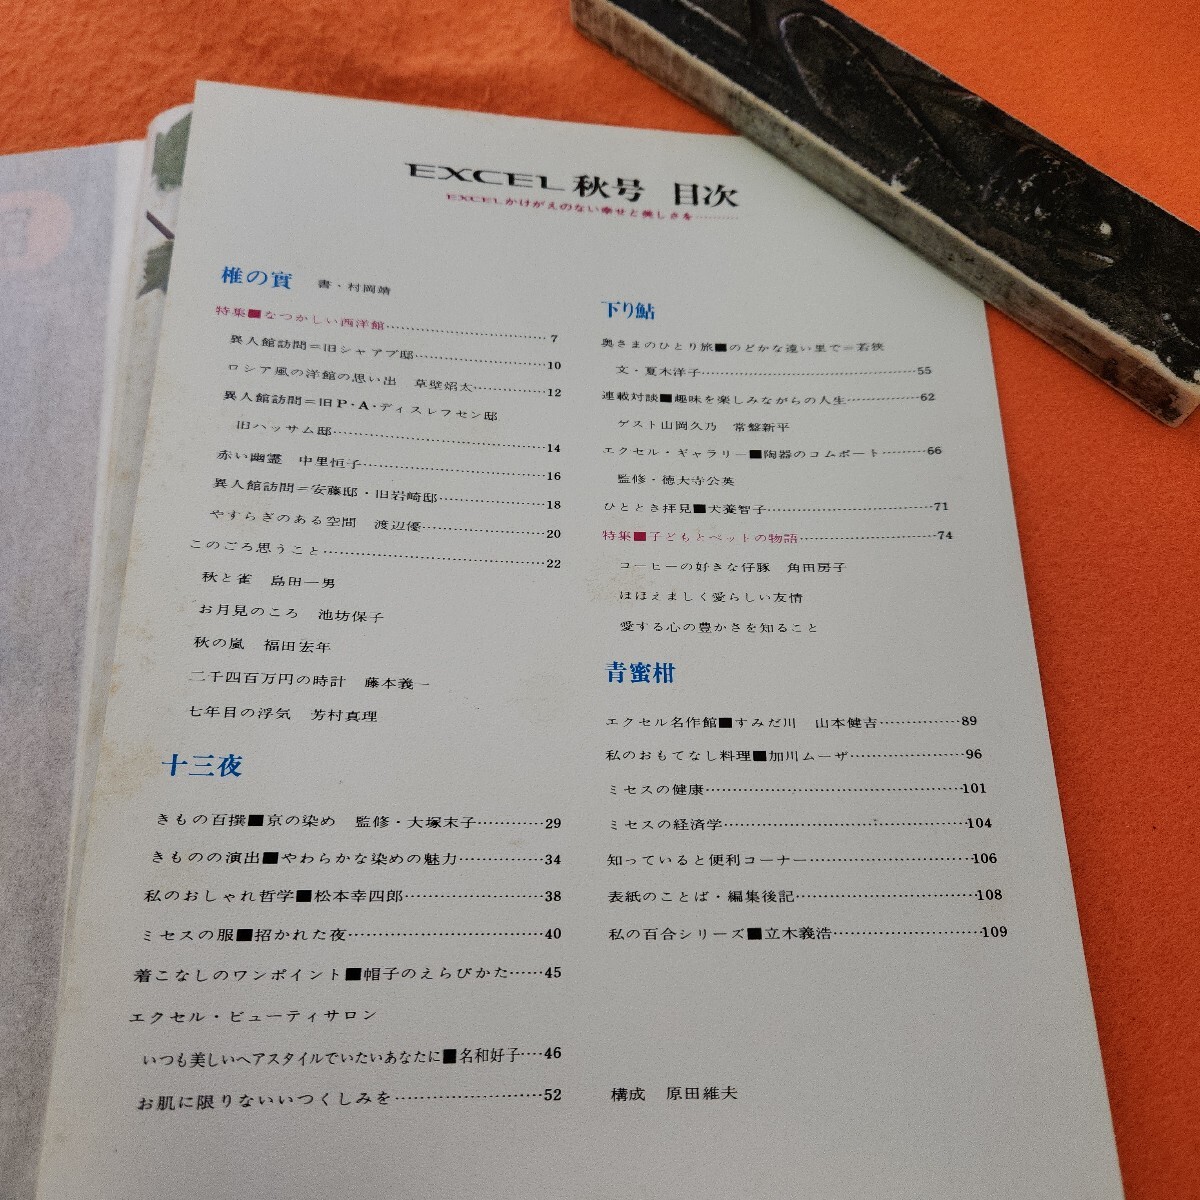 EXCEL 秋号 目次
EXCELかけがえのない幸せと美しさを………
椎の實 書・村岡靖
特集■なつかしい西洋館……………7
異人館訪問=旧シャアプ邸……………10
ロシア風の洋館の思い出 草壁焰太……………12
異人館訪問=旧P・A・ディスレフセン邸
旧ハッサム邸……………14
赤い幽霊 中里恒子……………16
異人館訪問=安藤邸・旧岩崎邸……………18
やすらぎのある空間 渡辺優……………20
このごろ思うこと……………22
秋と雀 島田一男
お月見のころ 池坊保子
秋の嵐 福田宏年
二千四百万円の時計 藤本義一
七年目の浮気 芳村真理
十三夜
きもの百撰■京の染め 監修・大塚末子…………29
きものの演出■やわらかな染めの魅力……………34
私のおしゃれ哲学■松本幸四郎……………38
ミセスの服■招かれた夜……………40
着こなしのワンポイント■帽子のえらびかた……45
エクセル・ビューティサロン
いつも美しいヘアスタイルでいたいあなたに■名和好子……46
お肌に限りないいつくしみを……………52
下り鮎
奥さまのひとり旅■のどかな遠い里で=若狭
文・夏木洋子……………55
連載対談■趣味を楽しみながらの人生……………62
ゲスト山岡久乃 常盤新平
エクセル・ギャラリー■陶器のコムポート………66
監修・徳大寺公英
ひととき拝見■犬養智子……………71
特集■子どもとペットの物語……………74
コーヒーの好きな仔豚 角田房子
ほほえましく愛らしい友情
愛する心の豊かさを知ること
青蜜柑
エクセル名作館■すみだ川 山本健吉……………89
私のおもてなし料理■加川ムーザ……………96
ミセスの健康……………101
ミセスの経済学……………104
知っていると便利コーナー……………106
表紙のことば・編集後記……………108
私の百合シリーズ■立木義浩……………109
構成 原田維夫